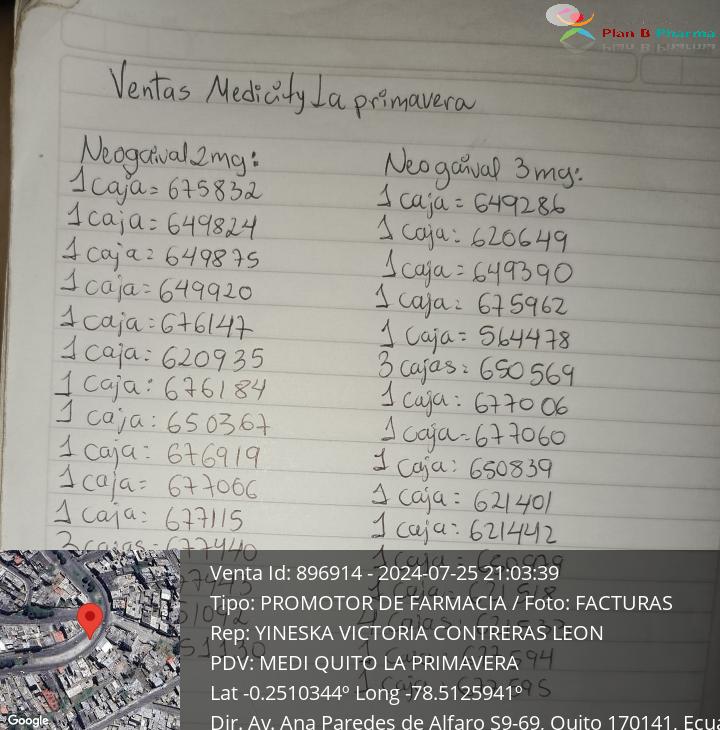 Plan B Pharma
Ventas Medicity La primavera
Neogaival 2mg:
1 caja = 675832
1 caja = 649824
1 caja = 649875
1 caja = 649920
1 caja = 676147
1 caja: 620935
1 caja: 676184
1 caja: 650367
1 caja: 676919
1 caja = 677066
1 caja: 677115
3 cajas = 677440
Neogaival 3mg:
1 caja = 649286
1 caja: 620649
1 caja = 649390
1 caja: 675962
1 caja = 564478
3 cajas: 650569
1 caja: 677006
1 caja = 677060
1 caja: 650839
1 caja = 621401
1 caja: 621442
1 caja
Venta Id: 896914 - 2024-07-25 21:03:39
Tipo: PROMOTOR DE FARMACIA / Foto: FACTURAS
Rep: YINESKA VICTORIA CONTRERAS LEON
PDV: MEDI QUITO LA PRIMAVERA
Lat -0.2510344º Long -78.5125941º
Dir. Av. Ana Paredes de Alfaro S9-69, Quito 170141, Ecua
Google